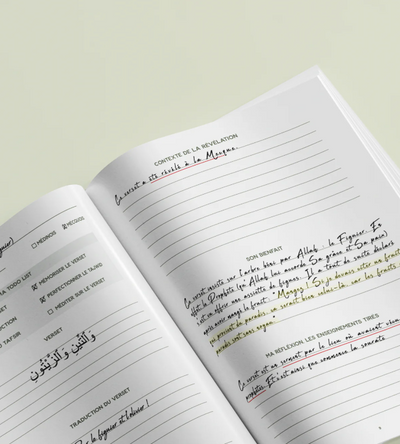 MÉDINOIS
MECQUOIS
TODO LIST
MÉMORISER LE VERSET
PERFECTIONNER LE TAJWID
MÉDITER SUR LE VERSET
TAFSIR
VERSET
وَالتِّينِ وَالزَّيْتُونِ
TRADUCTION DU VERSET
Par le figuier et l'olivier !
CONTEXTE DE LA RÉVÉLATION
Ce verset a été révélé à la Mecque.
SON BIENFAIT
Ce verset insiste sur l'arbre béni par Allah : le figuier. En
effet le Prophète (qu'Allah lui accorde Sa grâce et Sa paix)
s'est vu offrir une assiette de figues. Il a tout de suite déclaré
après avoir mangé le fruit : "Mangez ! Si je devais citer un fruit
qui provient du paradis, ce serait bien celui-là car les fruits du
paradis sont sans noyau."
MA RÉFLEXION, LES ENSEIGNEMENTS TIRÉS
Ce verset est un serment par le lieu où avaient vécu
prophètes. Et c'est ainsi que commence la sourate